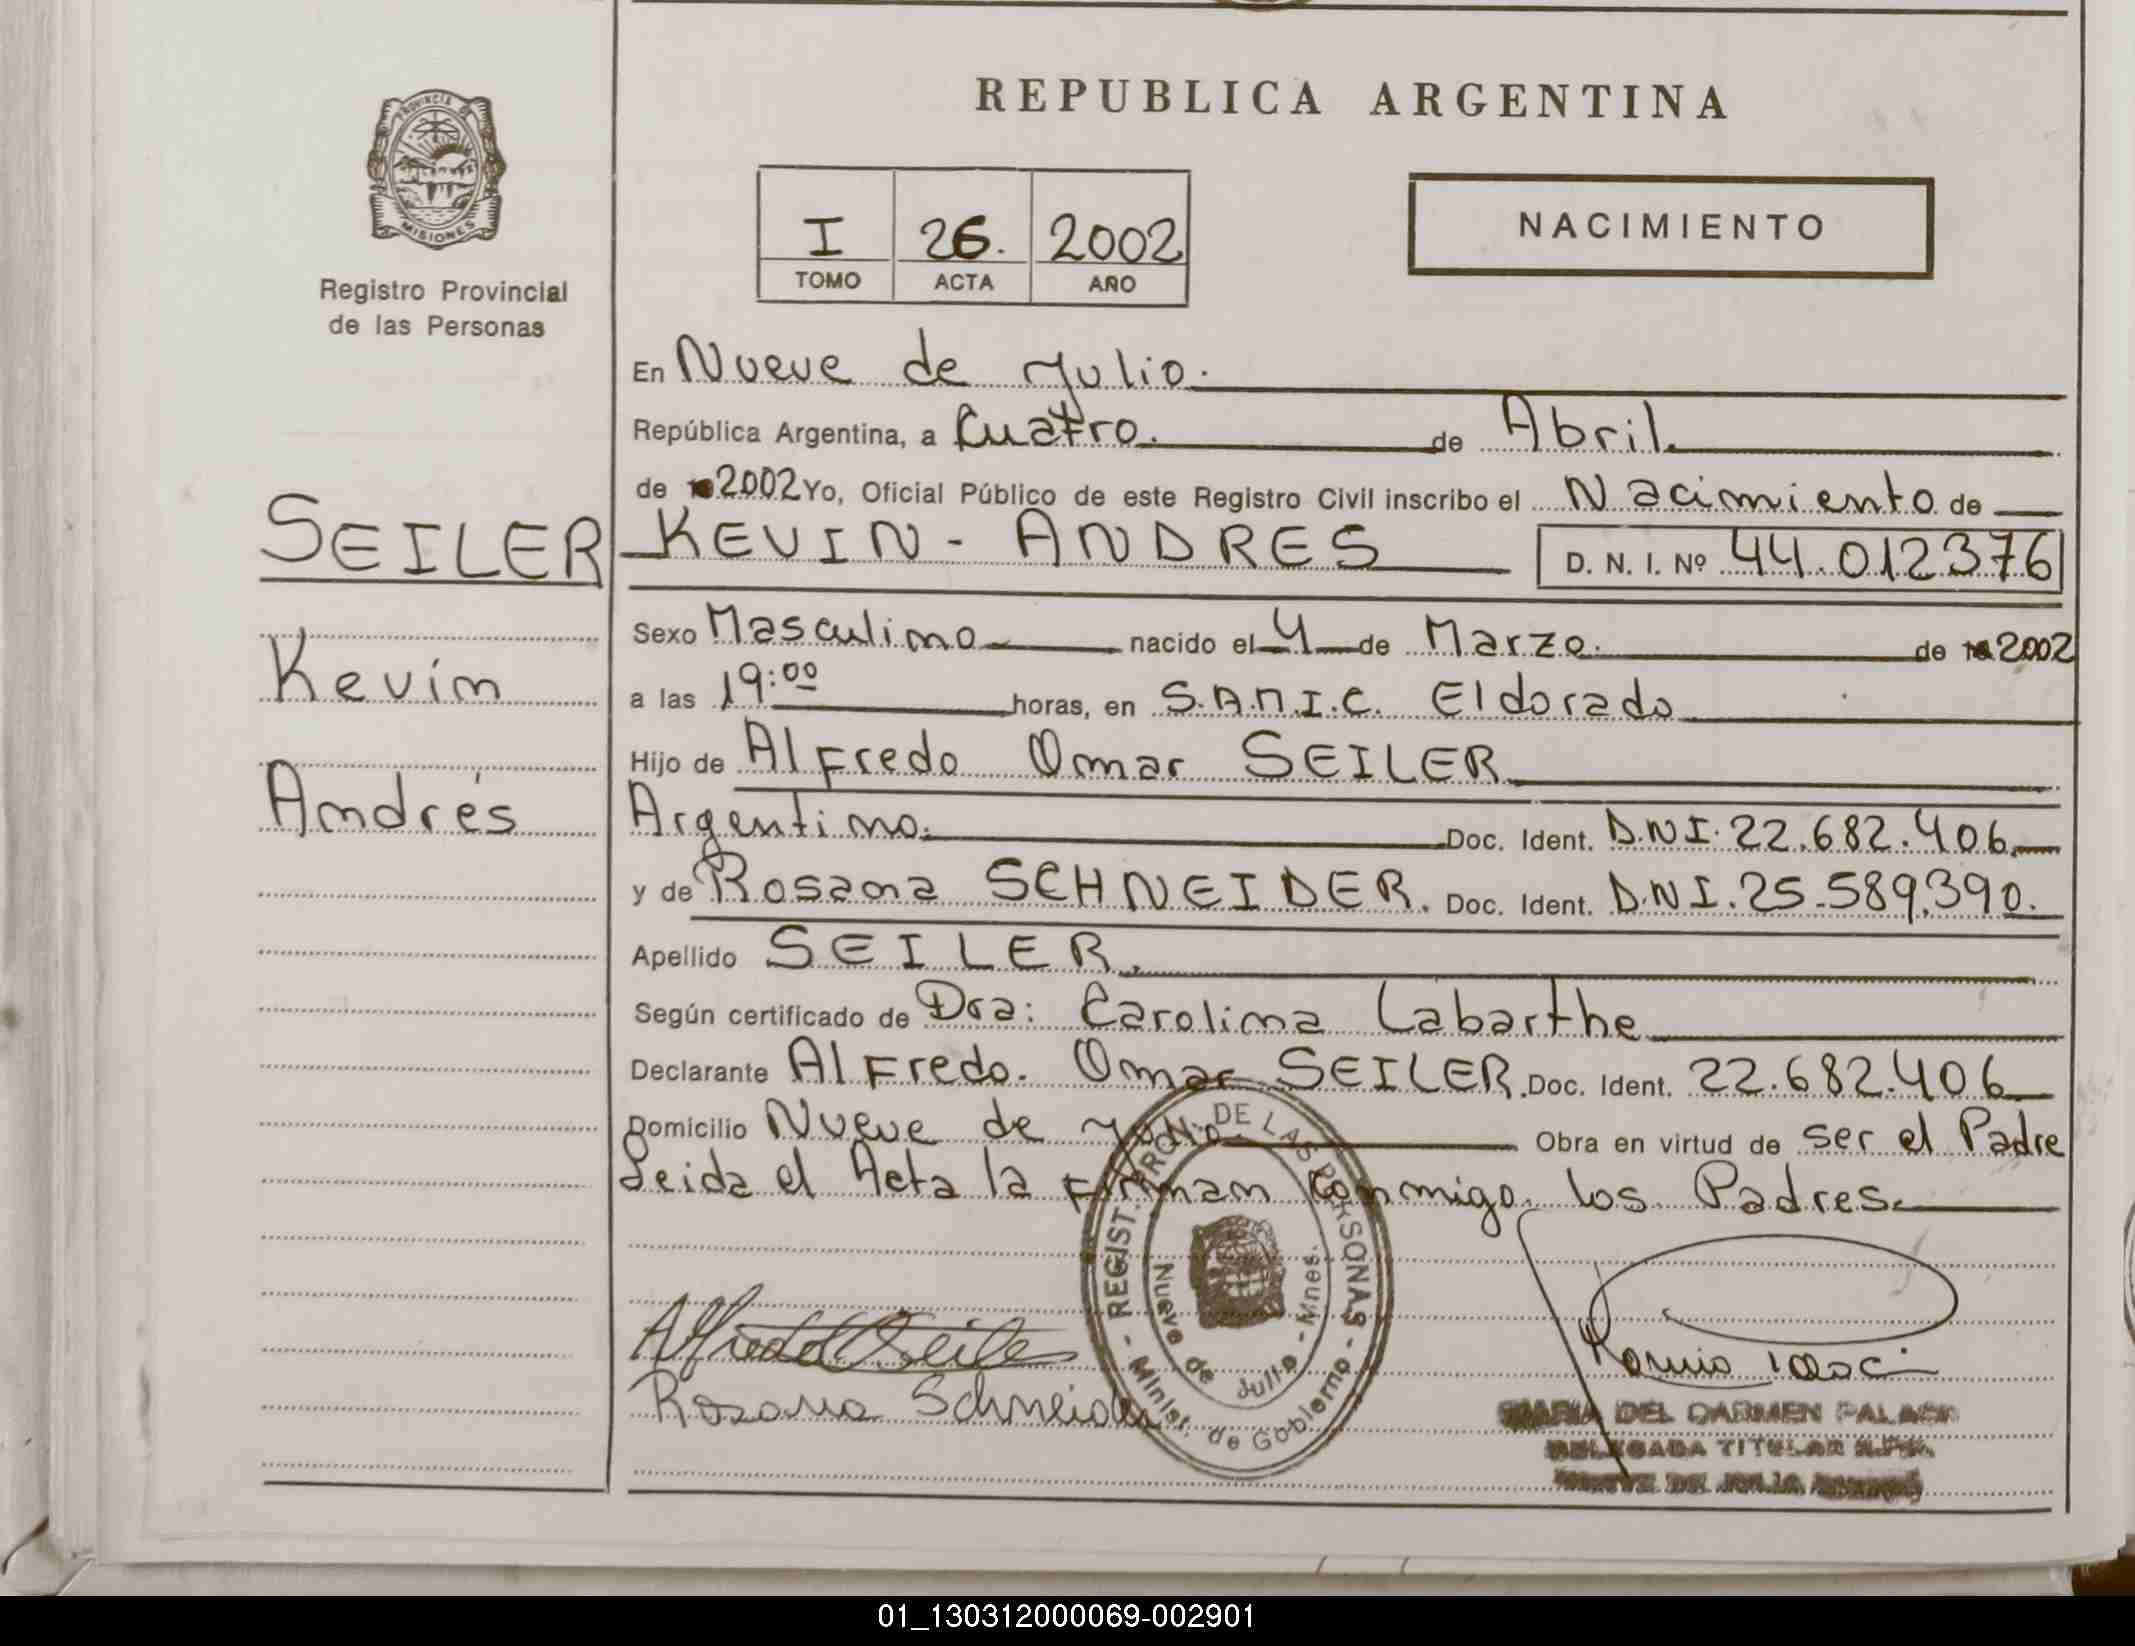 PROVINCIA DE
MISIONES
Registro Provincial
de las Personas
SEILER
Kevin
Andrés
REPUBLICA ARGENTINA
I 26. 2002
TOMO ACTA AÑO
NACIMIENTO
En Nueve de Julio.
República Argentina, a Cuatro. de Abril.
de 2002 Yo, Oficial Público de este Registro Civil inscribo el Nacimiento de
KEVIN - ANDRES D. N. I. Nº 44.012376
Sexo Masculino nacido el 4 de Marzo. de 2002
a las 19:00 horas, en S.A.M.I.C. Eldorado
Hijo de Alfredo Omar SEILER
Argentino. Doc. Ident. D.N.I. 22.682.406.
y de Rosana SCHNEIDER. Doc. Ident. D.N.I. 25.589.390.
Apellido SEILER.
Según certificado de Dra: Carolina Labarthe
Declarante Alfredo. Omar SEILER. Doc. Ident. 22.682.406
Domicilio Nueve de Julio Obra en virtud de ser el Padre
Leida el Acta la Firman Conmigo. los Padres.
REGIST. PROV. DE LAS PERSONAS - Minist. de Gobierno -
Nueve de Julio - Mnes.
Alfredo Seiler
Rosana Schneider
MARIA DEL CARMEN PALACI
DELEGADA TITULAR R.P.P.
NUEVE DE JULIO
01_130312000069-002901